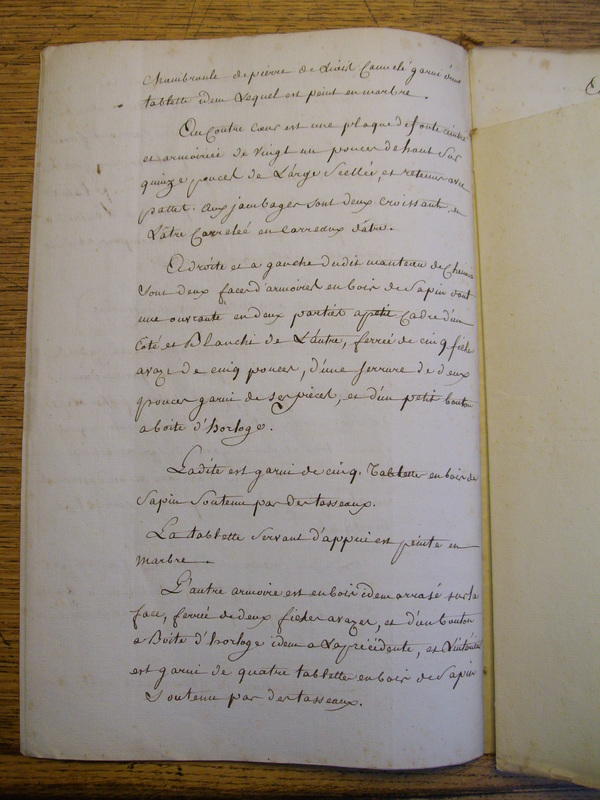 Chambranle de pierre de Liais Cannelé garni d'une
tablette idem Lequel est peint en marbre.
Au Contre Cœur est une plaque de fonte cintrée
et armoiriée de vingt un pouces de haut sur
quinze pouces de Large Scellée, et retenue avec
pattes. aux jambages sont deux Croissants, en
L'âtre Carrelée en Carreaux d'âtre.
A droite et a gauche dudit manteau de Cheminée
Sont deux faces d'armoires en bois de Sapin dont
une ouvrante en deux parties a petit Cadre d'un
Coté et Blanchi de L'autre, ferrée de cinq fiches
a vaze de cinq pouces, d'une serrure de deux
pouces garni de ses pièces, et d'un petit bouton
a boite d'horloge.
Ladite est garni de cinq Tablettes en bois de
Sapin Soutenu par des tasseaux.
La tablette Servant d'appui est peinte en
marbre.
L'autre armoire est en bois idem arrasé sur la
face, ferrée de deux fiches a vazes, et d'un bouton
a Boite d'horloge idem a La précédente, et L'intérieur
est garni de quatre tablettes en bois de Sapin
Soutenu par des tasseaux.